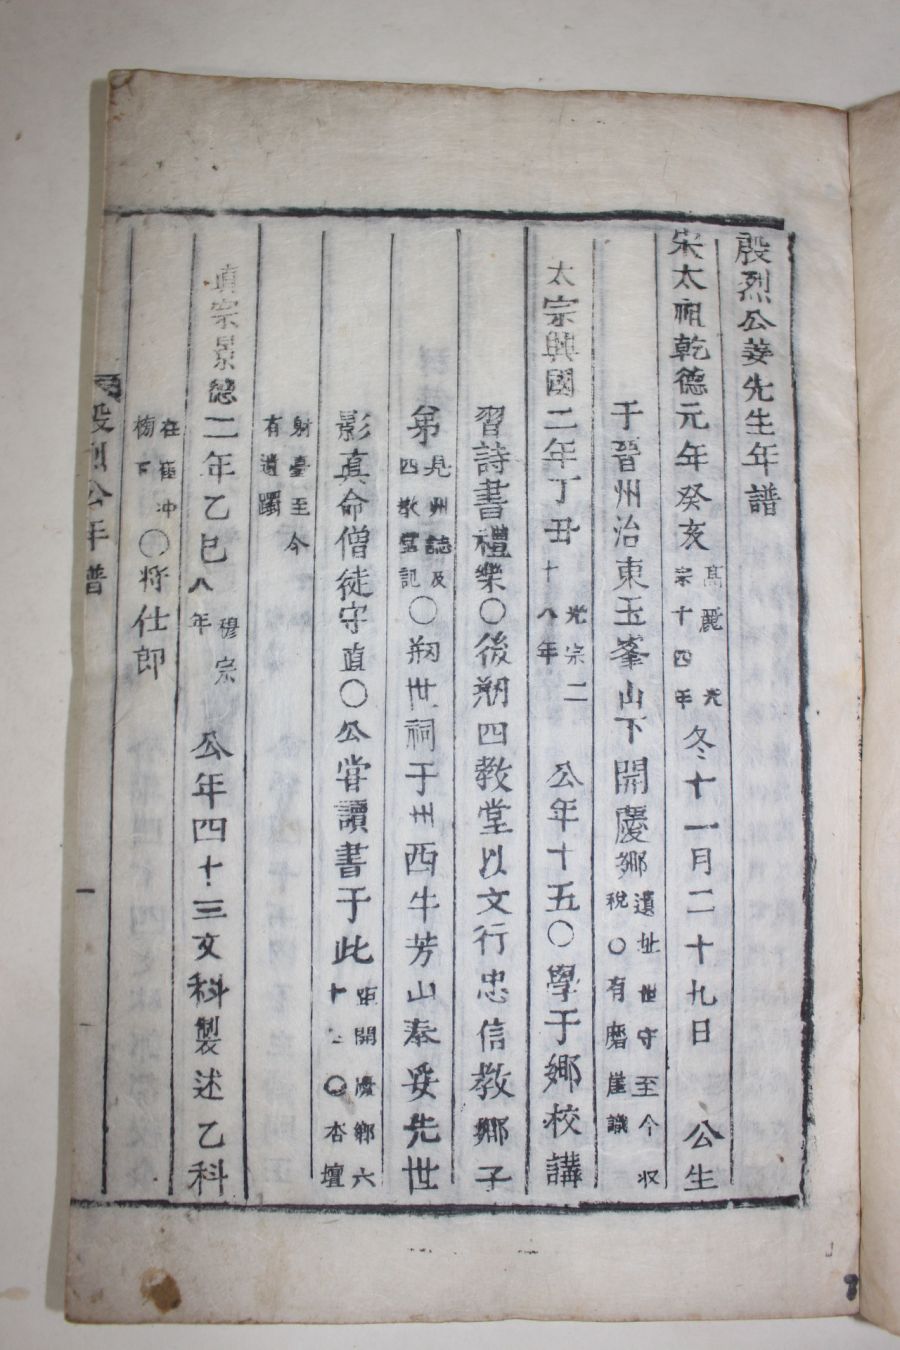 殷烈公姜先生年譜
宋太祖乾德元年癸亥高麗光宗十四年冬十一月二十九日公生
于晉州治東玉峯山下開慶鄉遺址世守至今収稅○有磨崖識
太宗興國二年丁丑光宗二十八年公年十五○學于鄉校講
習詩書禮樂○後刱四教堂以文行忠信教鄉子
弟見州誌及四敎堂記○刱世祠于州西牛芳山奉妥先世
影真命僧徒守直○公甞讀書于此距開慶鄉六十○杏壇
射臺至今有遺躅
真宗景德二年乙巳穆宗八年公年四十三文科製述乙科
在崔冲榜下○將仕郎
殷烈公年譜
一